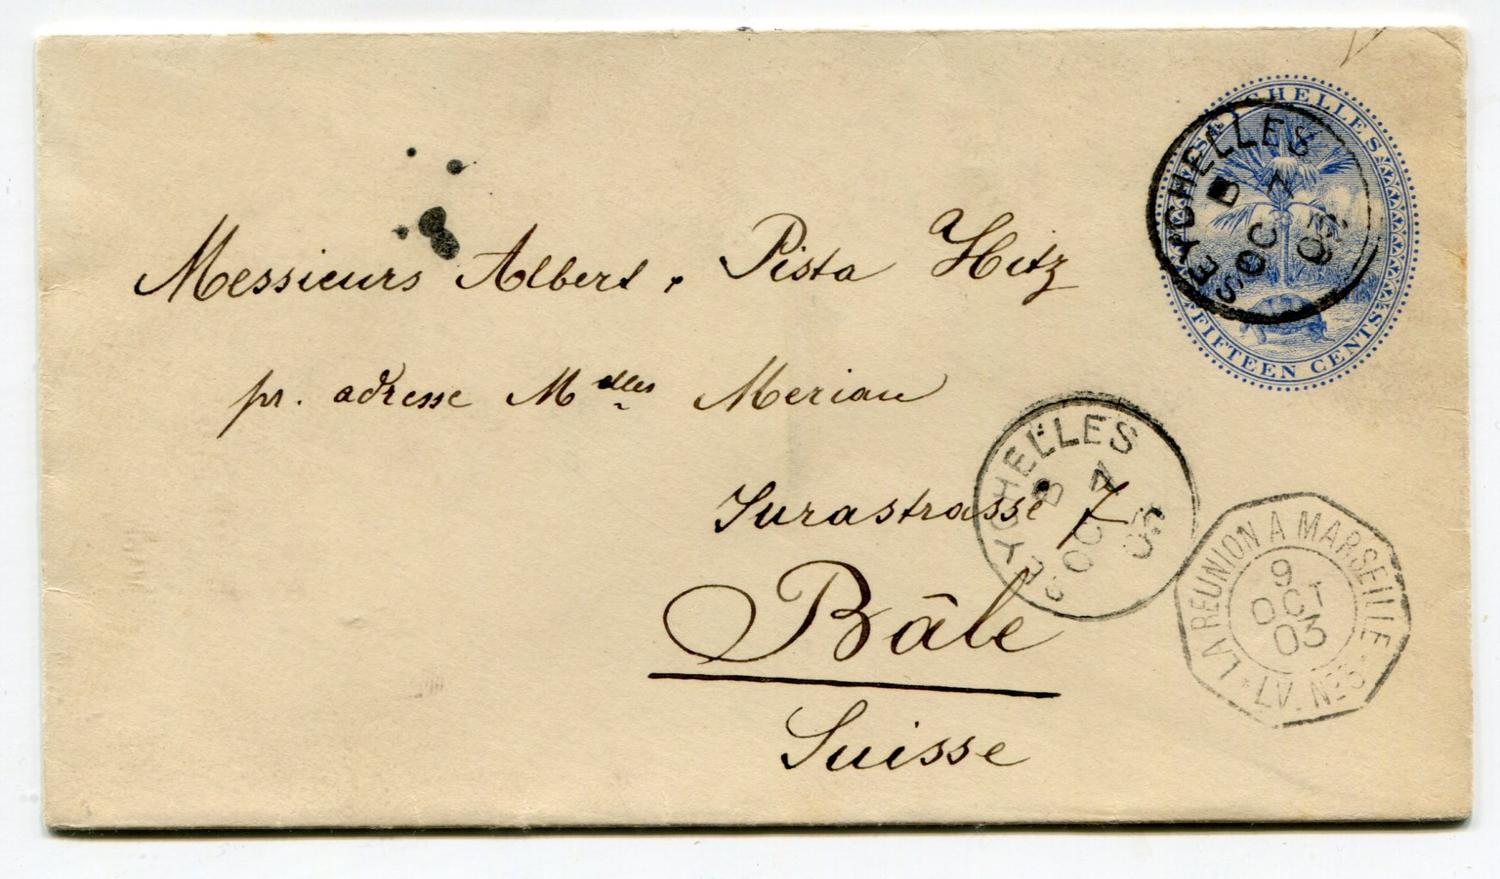 SEYCHELLES
FIFTEEN CENTS
SEYCHELLES
B
OC 7
03
Messieurs Albert, Pista Hitz
pr. adresse Mdlles Merian
SEYCHELLES
B
OC 7
03
Jurastrasse 7
Bâle
Suisse
LA REUNION A MARSEILLE
9
OCT
03
LV. Nº3